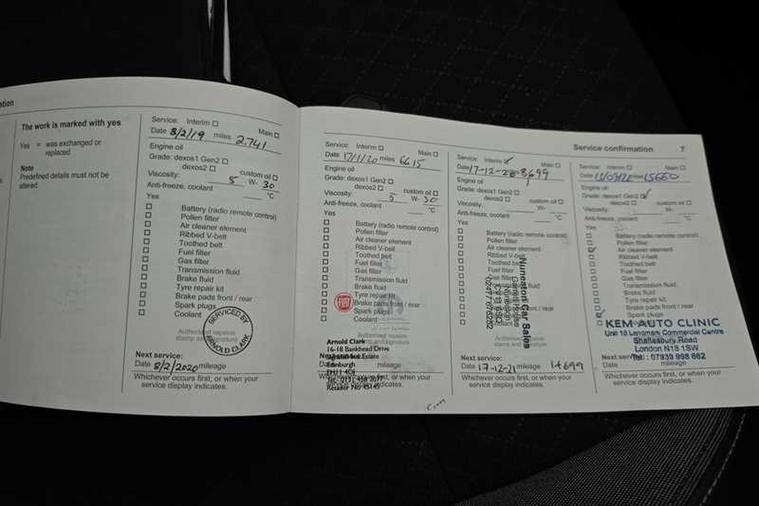 The work is marked with yes
Yes = was exchanged or
replaced
Note
Predefined details must not be
altered
Service: Interim ☐ Main ☐
Date 8/2/19 miles 2,741
Engine oil
Grade: dexos1 Gen2 ☐
dexos2 ☐ custom oil ☐
Viscosity: 5 W- 30
Anti-freeze, coolant °C
Yes
☐ Battery (radio remote control)
☐ Pollen filter
☐ Air cleaner element
☐ Ribbed V-belt
☐ Toothed belt
☐ Fuel filter
☐ Gas filter
☐ Transmission fluid
☐ Brake fluid
☐ Tyre repair kit
☐ Brake pads front / rear
☐ Spark plugs
☐ Coolant
SERVICED BY
ARNOLD CLARK
Next service:
Date 8/2/2020 mileage
Whichever occurs first, or when your
service display indicates.
Service confirmation 7
Service: Interim ☐ Main ☐
Date 17/1/20 miles 6615
Engine oil
Grade: dexos1 Gen2 ☐
dexos2 ☐ custom oil ☐
Viscosity: 5 W- 30
Anti-freeze, coolant °C
Yes
☐ Battery (radio remote control)
☐ Pollen filter
☐ Air cleaner element
☐ Ribbed V-belt
☐ Toothed belt
☐ Fuel filter
☐ Gas filter
☐ Transmission fluid
☐ Brake fluid
☐ Tyre repair kit
☐ Brake pads front / rear
☐ Spark plugs
☐ Coolant
FIAT
Arnold Clark
16-18 Bankhead Drive
Edinburgh
EH11 4DJ
Whichever occurs first, or when your
service display indicates.
Service: Interim Main ☐
Date 17-12-20 8699
Engine oil
Grade: dexos1 Gen2 ☐
dexos2 ☐ custom oil ☐
Viscosity: W-
Anti-freeze, coolant °C
Yes
Battery (radio remote control)
Pollen filter
Air cleaner element
Ribbed V-belt
Nuneaton Car Sales
Next service:
Date 17-12-21 mileage 14699
Whichever occurs first, or when your
service display indicates.
Service: Interim ☐ Main ☐
miles 15660
Engine oil
Grade: dexos1 Gen2
dexos2 ☐ custom oil ☐
Viscosity: W-
Anti-freeze, coolant °C
Yes
Battery (radio remote control)
Pollen filter
Air cleaner element
Ribbed V-belt
Toothed belt
Fuel filter
Gas filter
Transmission fluid
Brake fluid
Tyre repair kit
Brake pads front / rear
Spark plugs
KEM AUTO CLINIC
Unit 10 Lenmary Commercial Centre
Shaftesbury Road
London N18 1SW
Tel: 07939 998 662
Date mileage
Whichever occurs first, or when your
service display indicates.